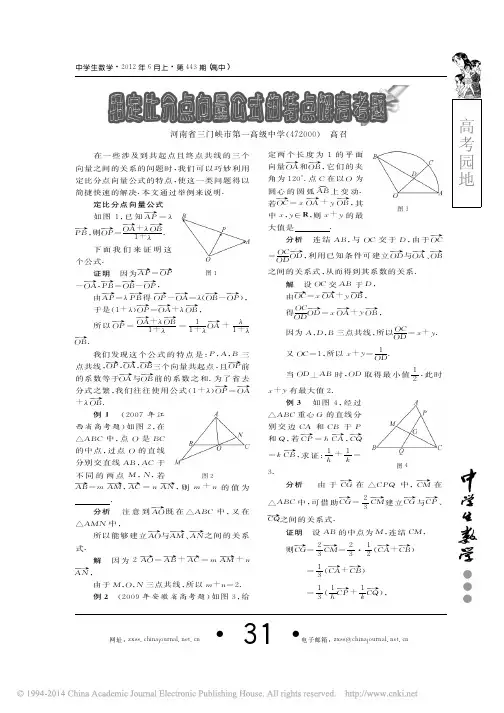 中学生数学·2012年6月上·第443期(高中)
用定比分点向量公式的特点解高考题
河南省三门峡市第一高级中学(472000) 高召
在一些涉及到共起点且终点共线的三个
向量之间的关系的问题时,我们可以巧妙利用
定比分点向量公式的特点,使这一类问题得以
简捷快速的解决.本文通过举例来说明.
定比分点向量公式
如图1,已知AP=λ
PB,则OP=(OA+λOB)/(1+λ).
下面我们来证明这
个公式.
证明 因为AP=OP
-OA,PB=OB-OP,
由AP=λPB得OP-OA=λ(OB-OP),
于是(1+λ)OP=OA+λOB,
所以OP=(OA+λOB)/(1+λ)=1/(1+λ)OA+λ/(1+λ)
OB.
B
P
A
O
图1
我们发现这个公式的特点是:P,A,B三
点共线,OP,OA,OB三个向量共起点,且OP前
的系数等于OA与OB前的系数之和.为了省去
分式之繁,我们往往使用公式(1+λ)OP=OA
+λOB.
例1 (2007年江
西省高考题)如图2,在
△ABC中,点O是BC
的中点,过点O的直线
分别交直线AB,AC于
不同的两点M,N,若
AB=mAM,AC=nAN,则m+n的值为
.
A
B
O
C
N
M
图2
分析 注意到AO既在△ABC中,又在
△AMN中,
所以能够建立AO与AM、AN之间的关系
式.
解 因为2AO=AB+AC=mAM+n
AN,
由于M,O,N三点共线,所以m+n=2.
例2 (2009年安徽省高考题)如图3,给
定两个长度为1的平面
向量OA和OB,它们的夹
角为120°.点C在以O为
圆心的圆弧AB上变动.
若OC=xOA+yOB,其
中x,y∈R,则x+y的最
大值是.
B
C
D
O
A
图3
分析 连结AB,与OC交于D,由于OC
=OC/OD OD,利用已知条件可建立OD与OA、OB
之间的关系式,从而得到其系数的关系.
解 设OC交AB于D,
由OC=xOA+yOB,
得OC/OD OD=xOA+yOB,
因为A,D,B三点共线,所以OC/OD=x+y.
又OC=1,所以x+y=1/OD.
当OD⊥AB时,OD取得最小值1/2.此时
x+y有最大值2.
例3 如图4,经过
△ABC重心G的直线分
别交边CA和CB于P
和Q,若CP=hCA,CQ
=kCB,求证:1/h+1/k=
3.
A
P
M
G
B
Q
C
图4
分析 由于CG在△CPQ中,CM在
△ABC中,可借助CG=2/3CM建立CG与CP、
CQ之间的关系式.
证明 设AB的中点为M,连结CM,
则CG=2/3CM=2/3·1/2(CA+CB)
=1/3(CA+CB)
=1/3(1/h CP+1/k CQ),
高考园地
中学生数学
网址:zxss.chinajournal.net.cn · 31 · 电子邮箱:zxss@chinajournal.net.cn
© 1994-2014 China Academic Journal Electronic Publishing House. All rights reserved. http://www.cnki.net